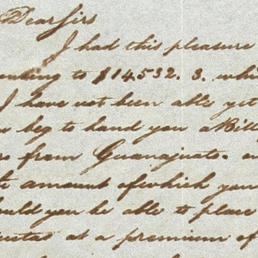 Dear Sirs
I had this pleasure
ending to $14532. 3. whi
I have not been able yet
beg to hand you a Bill
from Guanajuato.
amount of which you
ould you be able to place
at a premium of